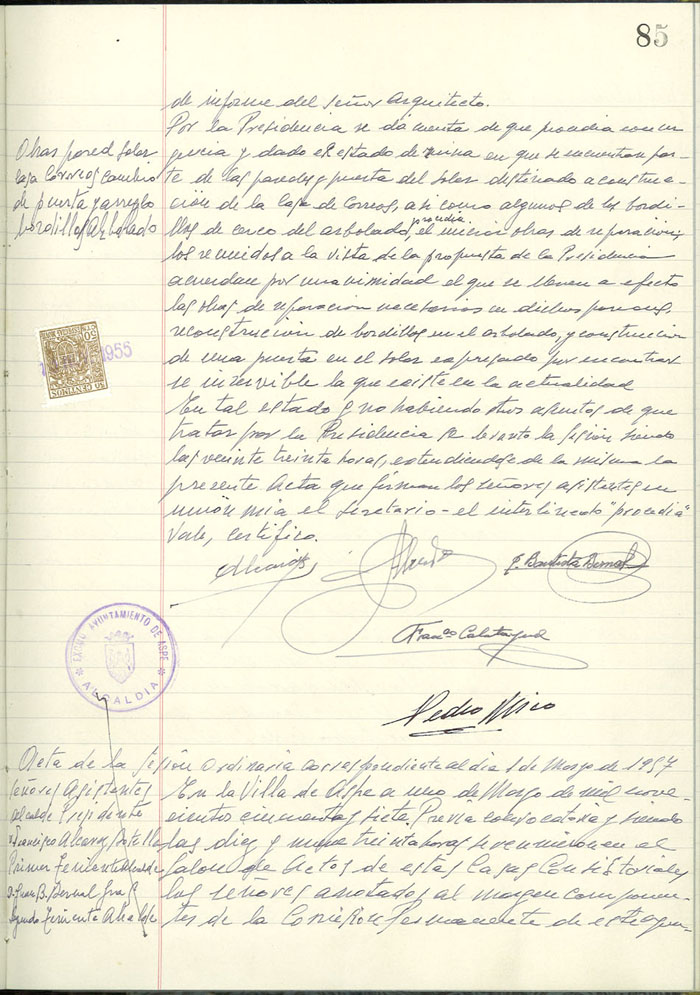 85
de informe del Señor Arquitecto.
Por la Presidencia se dá cuenta de que procedia con ur
gencia y dado el estado de ruina en que se encuentran par-
te de las paredes y puerta del solar destinado a construc-
ción de la Casa de Correos, asi como algunos de los bordi-
llos de cerco del arbolado, procedia el iniciar obras de reparación;
los reunidos a la vista de la propuesta de la Presidencia
acuerdan por unanimidad el que se lleven a efecto
las obras de reparacion necesarias en dichas paredes,
reconstrucción de bordillos en el arbolado, y construccion
de una puerta en el solar expresado por encontrar
se inservible la que existe en la actualidad
En tal estado y no habiendo otros asuntos de que
tratar por la Presidencia se levanto la sesión siendo
las veinte treinta horas, extendiendose de la misma la
presente Acta que firman los señores asistentes en
unión mia el Secretario - el interlineado "procedia"
Vale, Certifico.
Obras pared Solar
casa Correos cambio
de puerta y arreglo
bordillos Arbolado
50 CENTIMOS
1955
J. Bautista Bernal
Franco Calatayud
Pedro Mico
EXCMO. AYUNTAMIENTO DE ASPE
ALCALDIA
Acta de la Sesión Ordinaria correspondiente al dia 1 de Marzo de 1957
Señores Asistentes
Alcalde Presidente
D. Francisco Alcaraz
Primer Teniente Alcalde
D. Juan B. Bernal
Segundo Teniente Alcalde
En la Villa de Aspe a uno de Marzo de mil nove-
cientos cincuenta y siete. Previa convocatoria y siendo
las diez y nueve treinta horas se reunieron en el
Salon de Actos de estas Casas Consistoriales
los señores anotados al margen componen-
tes de la Comisión Permanente de este Ayun-